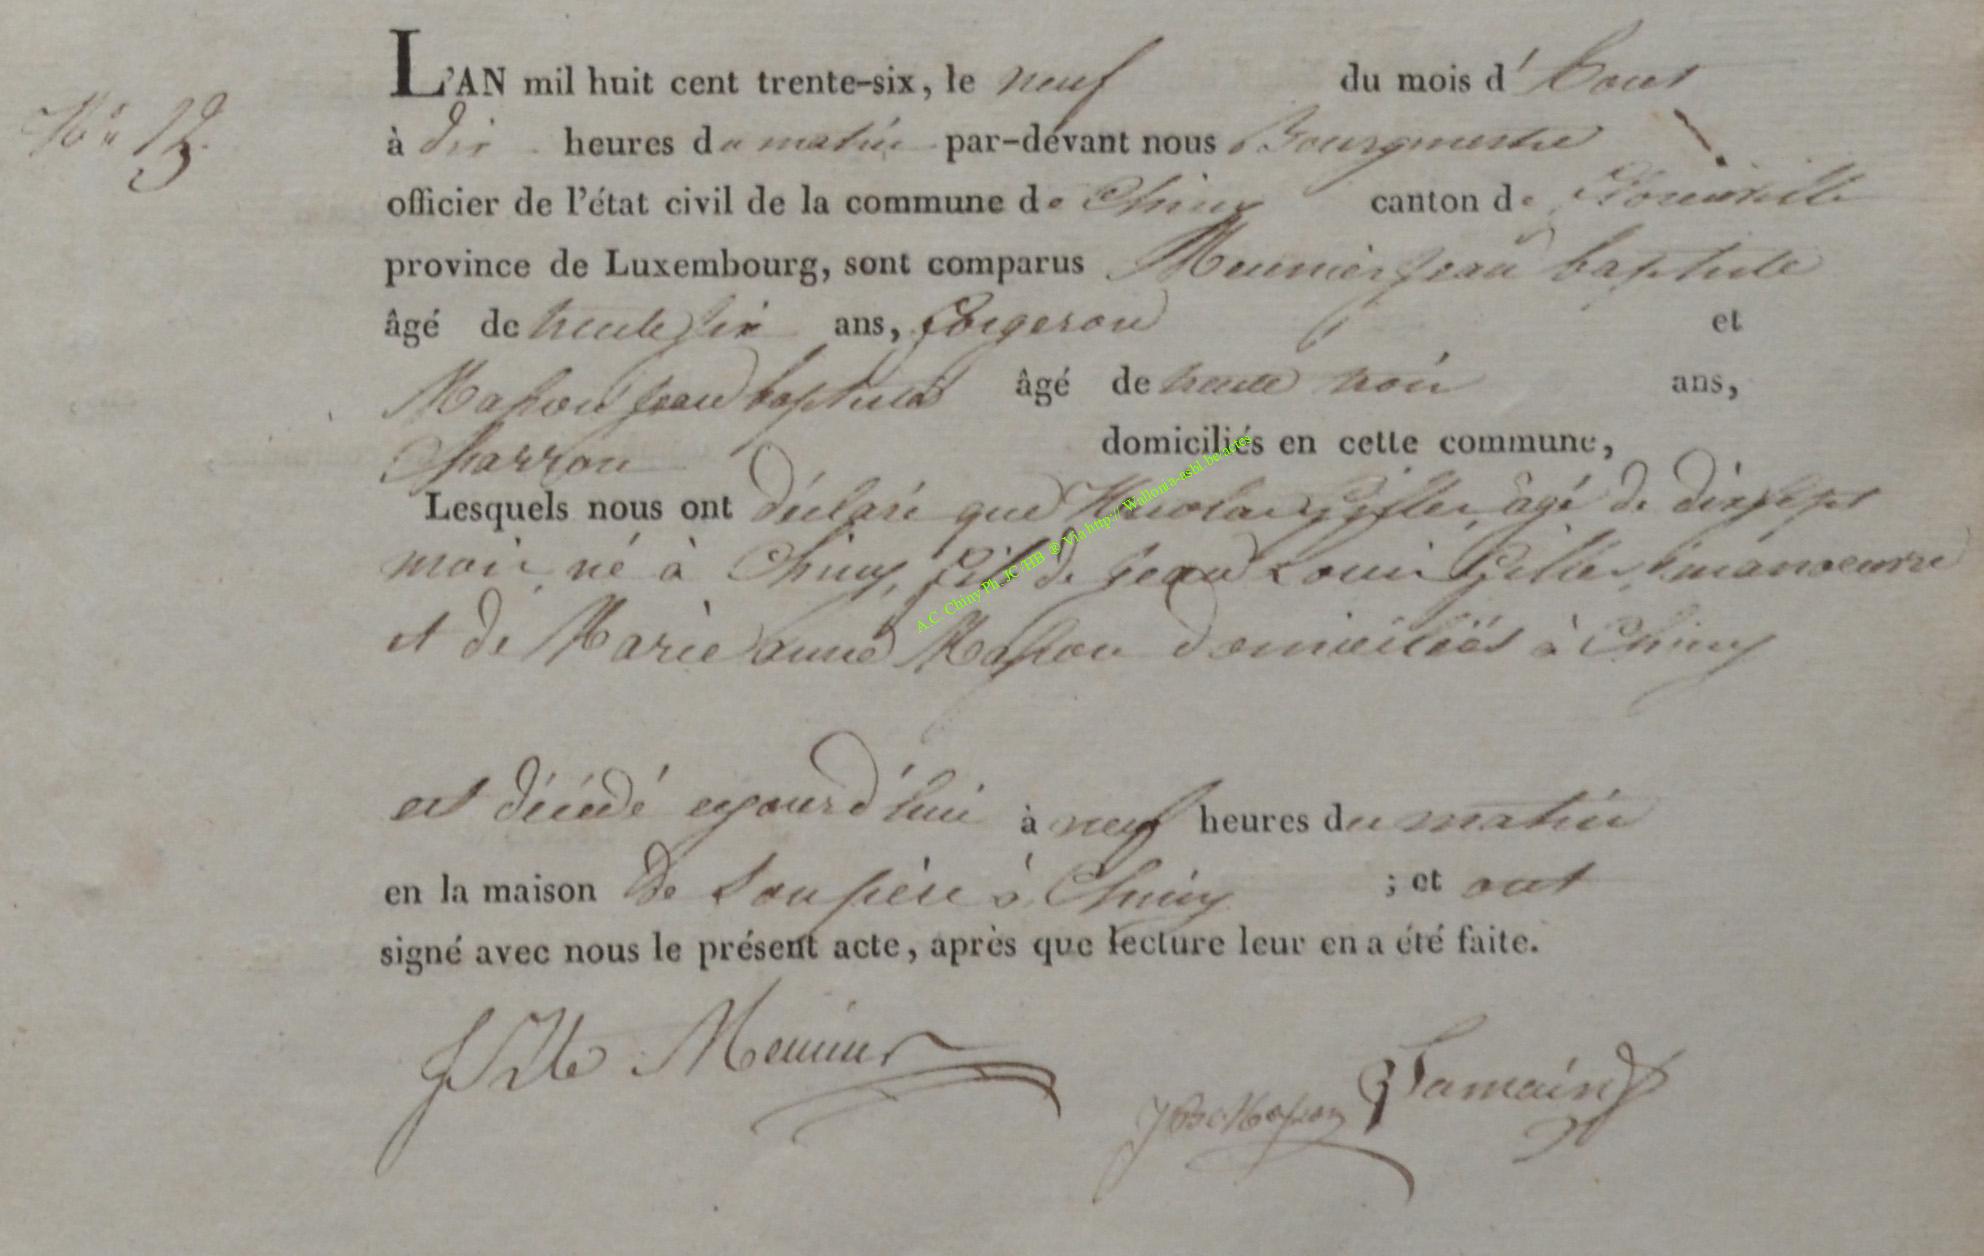 L'AN mil huit cent trente-six, le neuf du mois d'aout
N° 13.
à dix heures du matin par-dévant nous Bourgmestre
officier de l'état civil de la commune de Chiny canton de Florenville
province de Luxembourg, sont comparus Meunier jean baptiste
âgé de trente six ans, forgeron et
Masson jean baptiste âgé de trente trois ans,
Charron domiciliés en cette commune,
Lesquels nous ont déclaré que Nicolas Gilles, âgé de dixsept
mois, né à Chiny, fils de jean Louis Gilles, manoeuvre
et de Marie anne Masson domiciliés à Chiny
A.C. Chiny Ph. JC/HB ® Via http:// Wallonia-asbl.be actes
est décédé aujourd'hui à neuf heures du matin
en la maison de son père à Chiny ; et ont
signé avec nous le présent acte, après que lecture leur en a été faite.
J Bte Meunier
JBt Masson
Jamain